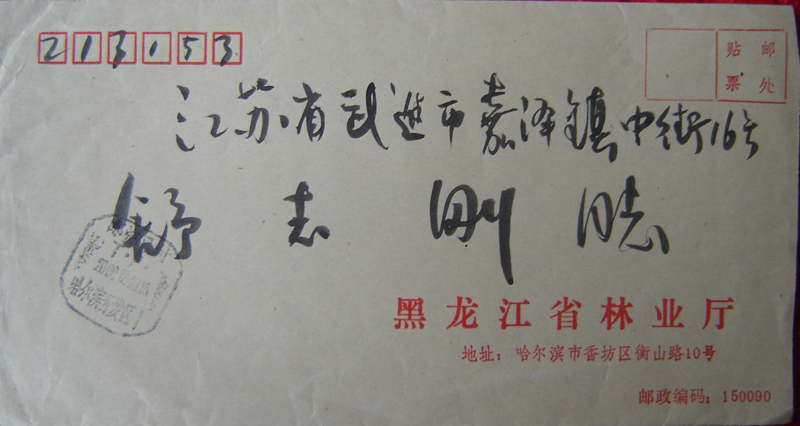 213153
贴邮
票处
江苏省武进市嘉泽镇中街16号
舒志刚同志
哈尔滨开发区
黑龙江省林业厅
地址：哈尔滨市香坊区衡山路10号
邮政编码：150090